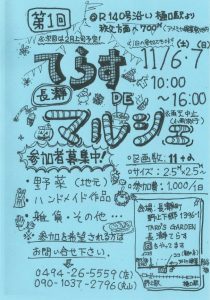 第1回
@R140号沿い 樋口駅より
秩父方面へ700m
11/6.7
(土)(日)
10:00
～16:00
てらす
長瀞
DE
マルシェ
参加者募集中!
・野菜(地元)
・ハンドメイド作品
・雑貨・その他…
参加を希望される方は
お問い合せ下さい。
0494-26-5559(店)
090-1037-2796
○区画数:11
○サイズ:2.5M×2.5M
○参加費:1,000/1日
会場:長瀞町
野上下郷
TARO'S GARDEN
長瀞てらす